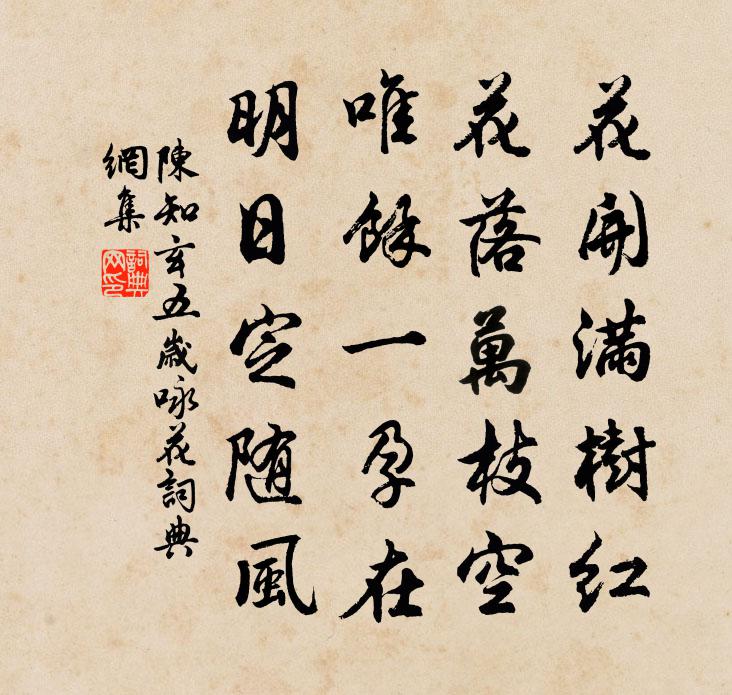 花開滿樹紅
花落萬枝空
唯餘一孕在
明日定随風
陳知玄五歲咏花詞典
網集
詞典
网印